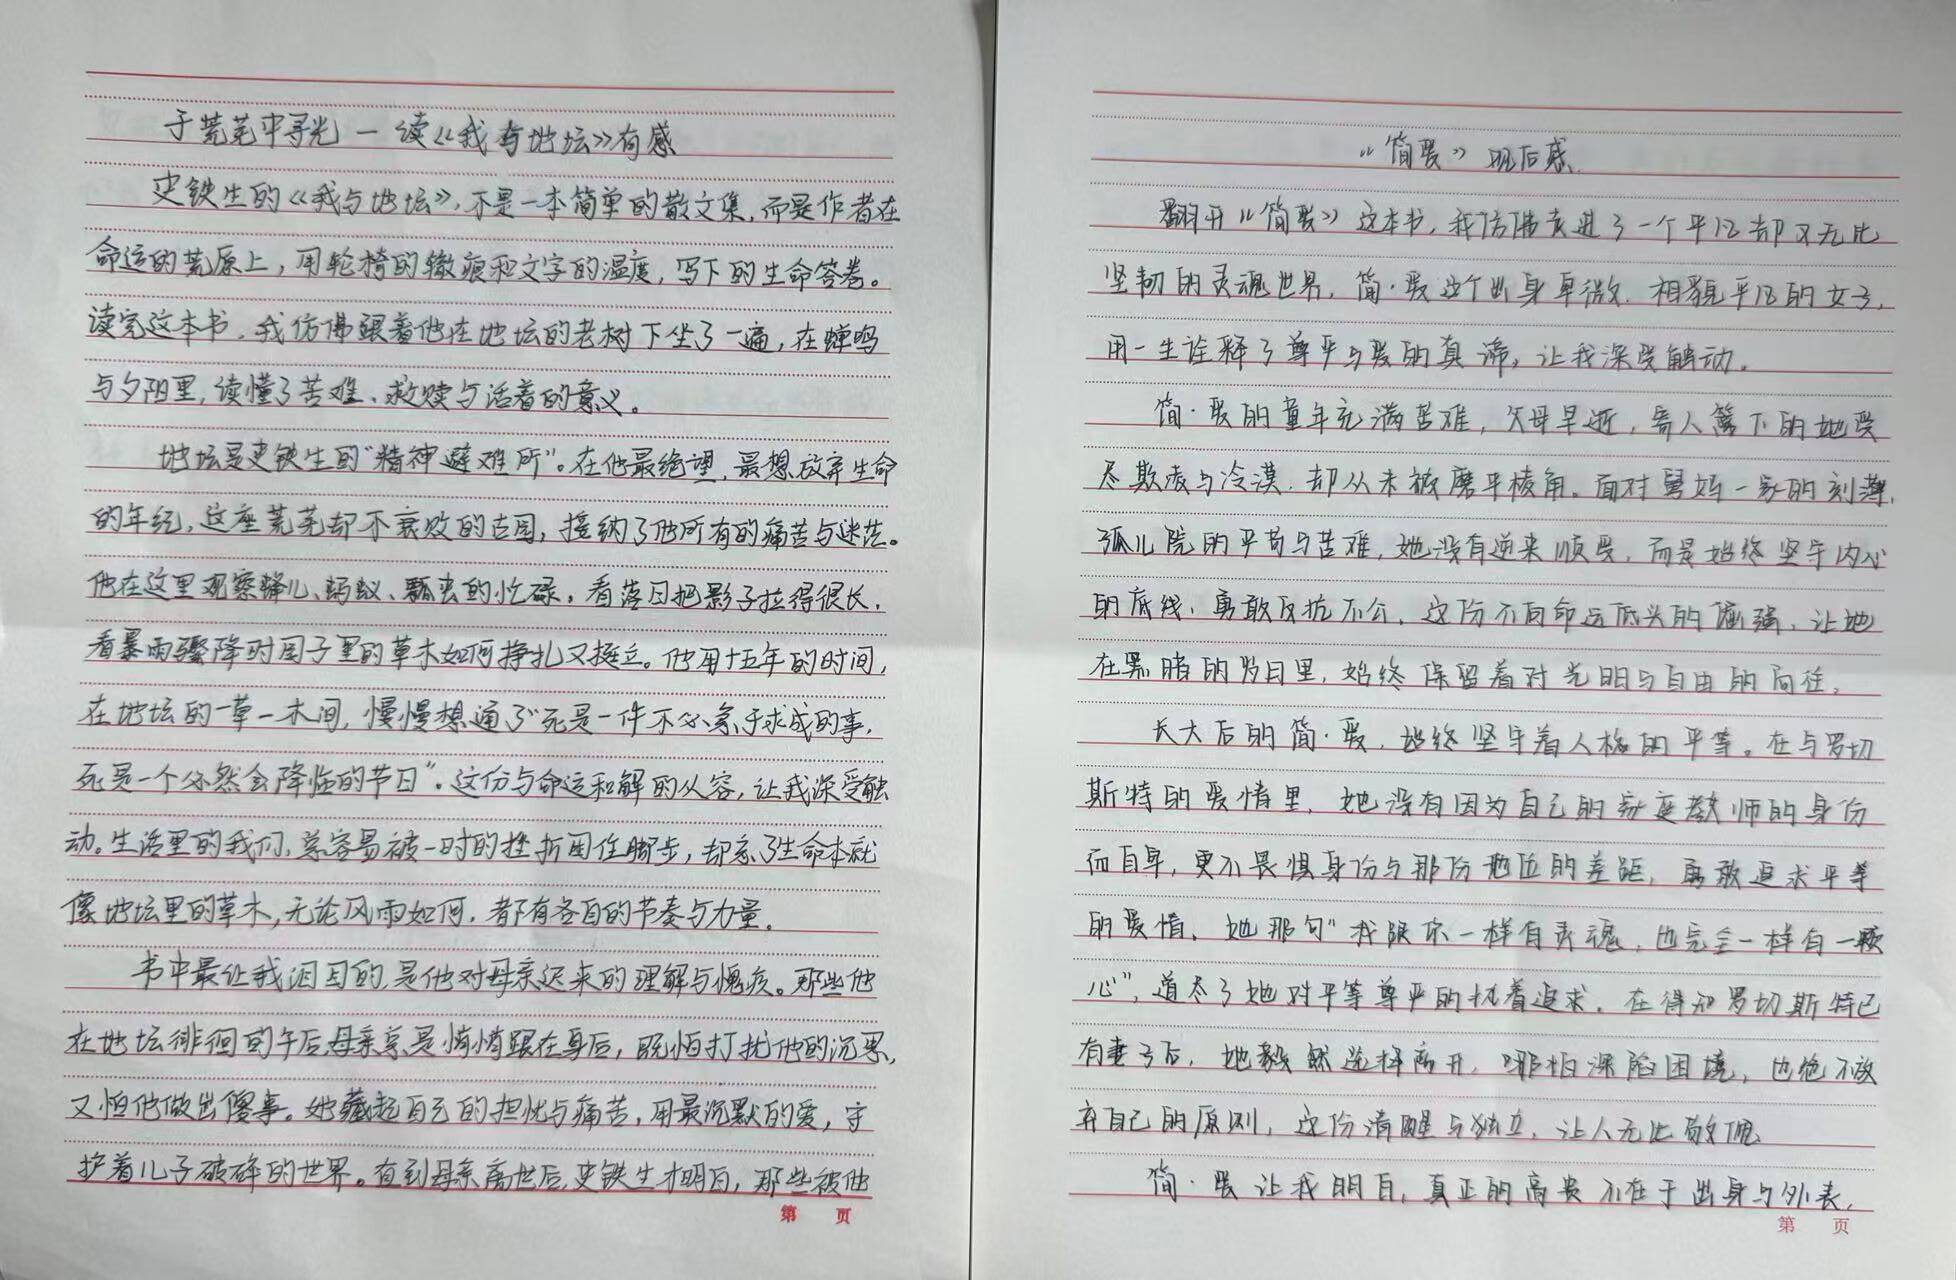 于荒芜中寻光一读《我与地坛》有感
史铁生的《我与地坛》,不是一本简单的散文集,而是作者在
命运的荒原上,用轮椅的辙痕和文字的温度,写下的生命答卷。
读完这本书,我仿佛跟着他在地坛的老树下坐了一遍,在蝉鸣
与夕阳里,读懂了苦难、救赎与活着的意义。
地坛是史铁生的"精神避难所"。在他最绝望,最想放弃生命
的年纪,这座荒芜却不衰败的古园,接纳了他所有的痛苦与迷茫。
他在这里观察蜂儿、蚂蚁、瓢虫的忙碌,看落日把影子拉得很长,
看暴雨骤降时园子里的草木如何挣扎又挺立。他用十五年的时间,
在地坛的一草一木间,慢慢想通了"死是一件不必急于求成的事,
死是一个必然会降临的节日"。这份与命运和解的从容,让我深受触
动。生活里的我们,总容易被一时的挫折困住脚步,却忘了生命本就
像地坛里的草木,无论风雨如何,都有各自的节奏与力量。
书中最让我泪目的,是他对母亲迟来的理解与愧疚。那些他
在地坛徘徊的午后,母亲总是悄悄跟在身后,既怕打扰他的沉思,
又怕他做出傻事。她藏起自己的担忧与痛苦,用最沉默的爱,守
护着儿子破碎的世界。直到母亲离世后,史铁生才明白,那些被他
第 页
《简爱》观后感
翻开《简爱》这本书,我仿佛走进了一个平凡却又无比
坚韧的灵魂世界,简·爱这个出身卑微、相貌平凡的女子,
用一生诠释了尊严与爱的真谛,让我深受触动。
简·爱的童年充满苦难,父母早逝,寄人篱下的她受
尽欺凌与冷漠,却从未被磨平棱角。面对舅妈一家的刻薄,
孤儿院的严苛与苦难,她没有逆来顺受,而是始终坚守内心
的底线,勇敢反抗不公,这份不向命运低头的倔强,让她
在黑暗的岁月里,始终保留着对光明与自由的向往。
长大后的简·爱,始终坚守着人格的平等。在与罗切
斯特的爱情里,她没有因为自己的家庭教师的身份
而自卑,更不畏惧身份与那份地位的差距,勇敢追求平等
的爱情,她那句"我跟你一样有灵魂,也完全一样有一颗
心",道尽了她对平等尊严的执着追求,在得知罗切斯特已
有妻子后,她毅然选择离开,哪怕深陷困境,也绝不放
弃自己的原则,这份清醒与独立,让人无比敬佩
简·爱让我明白,真正的高贵不在于出身与外表,
第 页